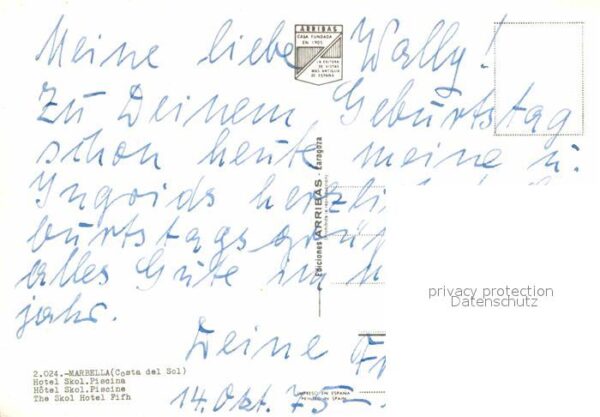 ARRIBAS
CASA FUNDADA
EN 1905
LA EDITORA
DE VISTAS
MAS ANTIGUA
DE ESPAÑA
Meine liebe Wally!
Zu Deinem Geburtstag
schon heute meine u.
Ingrids herzli
burtstagsgrüß
alles Gute im
jahr.
Deine
14. Okt. 75
Ediciones ARRIBAS - Zaragoza
2.024.-MARBELLA(Costa del Sol)
Hotel Skol.Piscina
Hôtel Skol.Piscine
The Skol Hotel Fifh
IMPRESO EN ESPAÑA
PRINTED IN SPAIN
privacy protection
Datenschutz